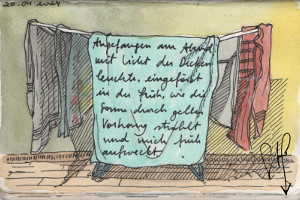 20.04.2024
Angefangen am Abend
mit Licht der Decken
leuchte, eingefärbt
in der Früh, wie die
Sonne durch gelben
Vorhang strahlt
und mich früh
aufweckt